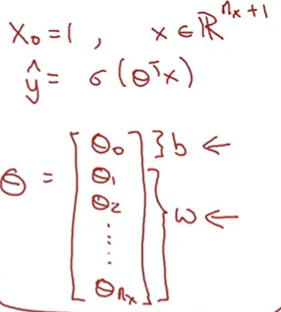 x₀ = 1 , x ∈ ℝⁿˣ⁺¹
ŷ = σ(θᵀx)
θ = [θ₀ } b ←
θ₁
θ₂
⋮
θₙₓ] } w ←